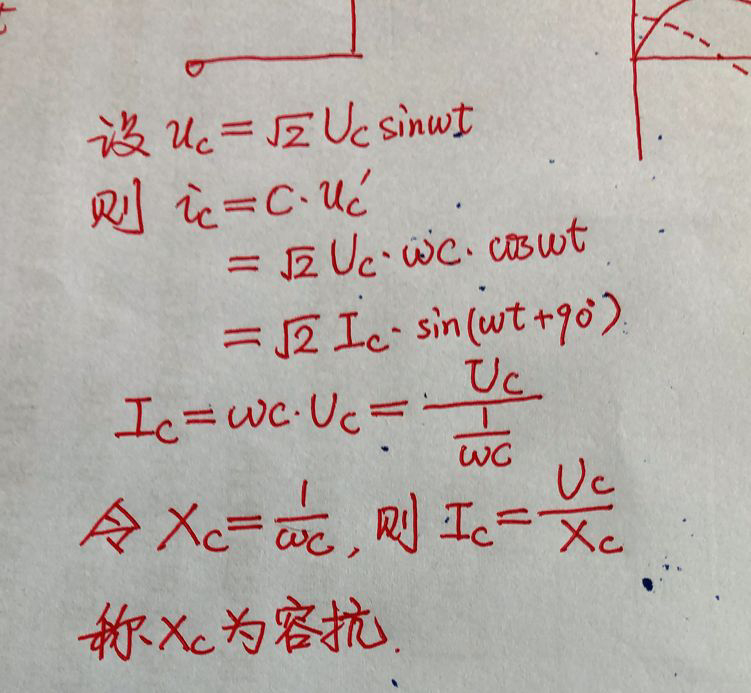 设 u_c = √2 U_c sinωt
则 i_c = C · u_c′
= √2 U_c · ωC · cosωt
= √2 I_c · sin(ωt + 90°)
I_c = ωC · U_c = U_c / (1/ωC)
令 X_c = 1/ωC, 则 I_c = U_c / X_c
称 X_c 为容抗.